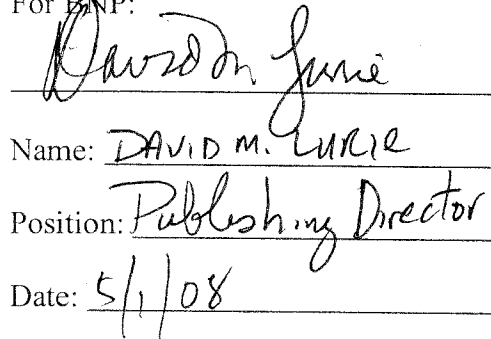 For BNP:
David M Lurie
Name: DAVID M. LURIE
Position: Publishing Director
Date: 5/1/08